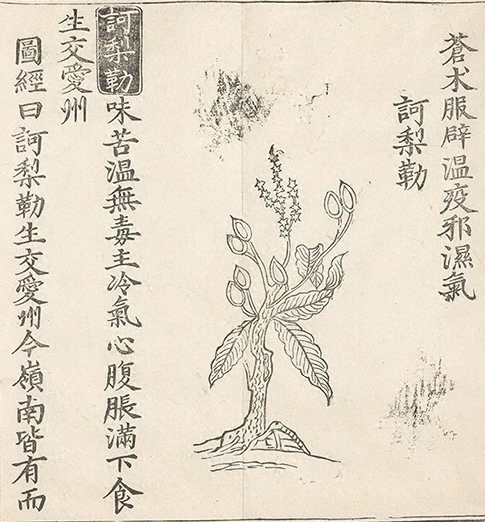 蒼术服辟温疫邪濕氣
訶梨勒
訶梨勒味苦温無毒主冷氣心腹脹滿下食
生交愛州
圖經曰訶梨勒生交愛州今嶺南皆有而